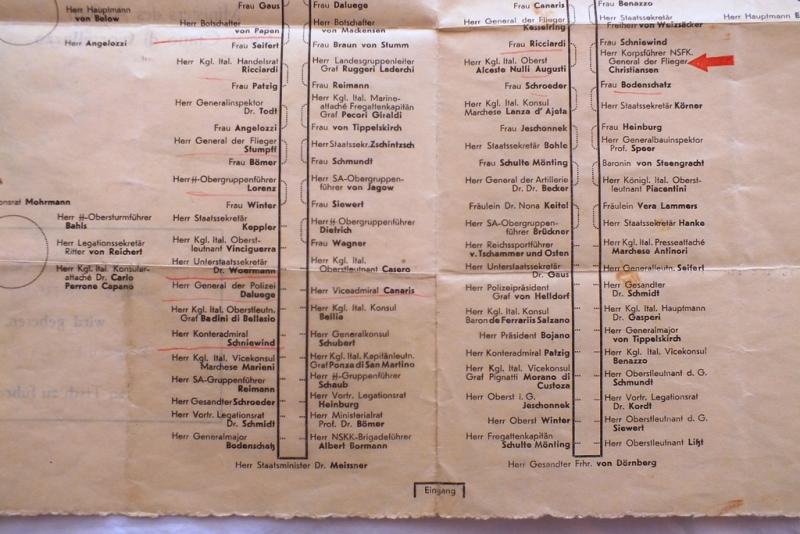 Herr Hauptmann
von Below
Herr Angelozzi
onsrat Mohrmann
Herr ᛋᛋ-Obersturmführer
Bahls
Herr Legationssekretär
Ritter von Reichert
Herr Kgl. Ital. Konsular-
attaché Dr. Carlo
Perrone Capano
Frau Gaus
Herr Botschafter
von Papen
Frau Seifert
Herr Kgl. Ital. Handelsrat
Ricciardi
Frau Patzig
Herr Generalinspektor
Dr. Todt
Frau Angelozzi
Herr General der Flieger
Stumpff
Frau Bömer
Herr ᛋᛋ-Obergruppenführer
Lorenz
Frau Winter
Herr Staatssekretär
Keppler
Herr Kgl. Ital. Oberst-
leutnant Vinciguerra
Herr Unterstaatssekretär
Dr. Woermann
Herr General der Polizei
Daluege
Herr Kgl. Ital. Oberstleutn.
Graf Badini di Bellasio
Herr Konteradmiral
Schniewind
Herr Kgl. Ital. Vicekonsul
Marchese Marieni
Herr SA-Gruppenführer
Reimann
Herr Gesandter Schroeder
Herr Vortr. Legationsrat
Dr. Schmidt
Herr Generalmajor
Bodenschatz
Frau Daluege
Herr Botschafter
von Mackensen
Frau Braun von Stumm
Herr Landesgruppenleiter
Graf Ruggeri Laderchi
Frau Reimann
Herr Kgl. Ital. Marine-
attaché Fregattenkapitän
Graf Pecori Giraldi
Frau von Tippelskirch
Herr Staatssekr. Zschintzsch
Frau Schmundt
Herr SA-Obergruppen-
führer von Jagow
Frau Siewert
Herr ᛋᛋ-Obergruppenführer
Dietrich
Frau Wagner
Herr Kgl. Ital.
Oberstleutnant Casero
Herr Viceadmiral Canaris
Herr Kgl. Ital. Konsul
Bellia
Herr Generalkonsul
Schubert
Herr Kgl. Ital. Kapitänleutn.
Graf Ponza di San Martino
Herr ᛋᛋ-Gruppenführer
Schaub
Herr Vortr. Legationsrat
Heinburg
Herr Ministerialrat
Prof. Dr. Bömer
Herr NSKK-Brigadeführer
Albert Bormann
Herr Staatsminister Dr. Meissner
Frau Canaris
Herr General der Flieger
Kesselring
Frau Ricciardi
Herr Kgl. Ital. Oberst
Alceste Nulli Augusti
Frau Schroeder
Herr Kgl. Ital. Konsul
Marchese Lanza d'Ajeta
Frau Jeschonnek
Herr Staatssekretär Bohle
Frau Schulte Mönting
Herr General der Artillerie
Dr. Dr. Becker
Fräulein Dr. Nona Keitel
Herr SA-Obergruppen-
führer Brückner
Herr Reichssportführer
v. Tschammer und Osten
Herr Unterstaatssekretär
Dr. Gaus
Herr Polizeipräsident
Graf von Helldorf
Herr Kgl. Ital. Konsul
Baron de Ferrariis Salzano
Herr Präsident Bojano
Herr Konteradmiral Patzig
Herr Kgl. Ital. Vicekonsul
Graf Pignatti Morano di
Custoza
Herr Oberst i. G.
Jeschonnek
Herr Oberst Winter
Herr Fregattenkapitän
Schulte Mönting
Frau Benazzo
Herr Staatssekretär
Freiherr von Weizsäcker
Frau Schniewind
Herr Korpsführer NSFK.
General der Flieger
Christiansen
Frau Bodenschatz
Herr Staatssekretär Körner
Frau Heinburg
Herr Generalbauinspektor
Prof. Speer
Baronin von Steengracht
Herr Königl. Ital. Oberst-
leutnant Piacentini
Fräulein Vera Lammers
Herr Staatssekretär Hanke
Herr Kgl. Ital. Presseattaché
Marchese Antinori
Herr Generalleutn. Seifert
Herr Gesandter
Dr. Schmidt
Herr Kgl. Ital. Hauptmann
Dr. Gasperi
Herr Generalmajor
von Tippelskirch
Herr Kgl. Ital. Vicekonsul
Benazzo
Herr Oberstleutnant d. G.
Schmundt
Herr Vortr. Legationsrat
Dr. Kordt
Herr Oberstleutnant d. G.
Siewert
Herr Oberstleutnant Lißt
Herr Gesandter Frhr. von Dörnberg
Herr Hauptmann
Eingang